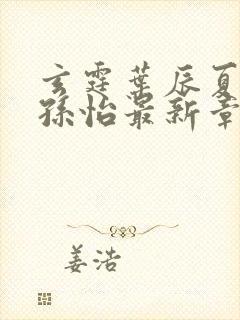 玄霆叶辰夏
孙怡最新章
姜浩